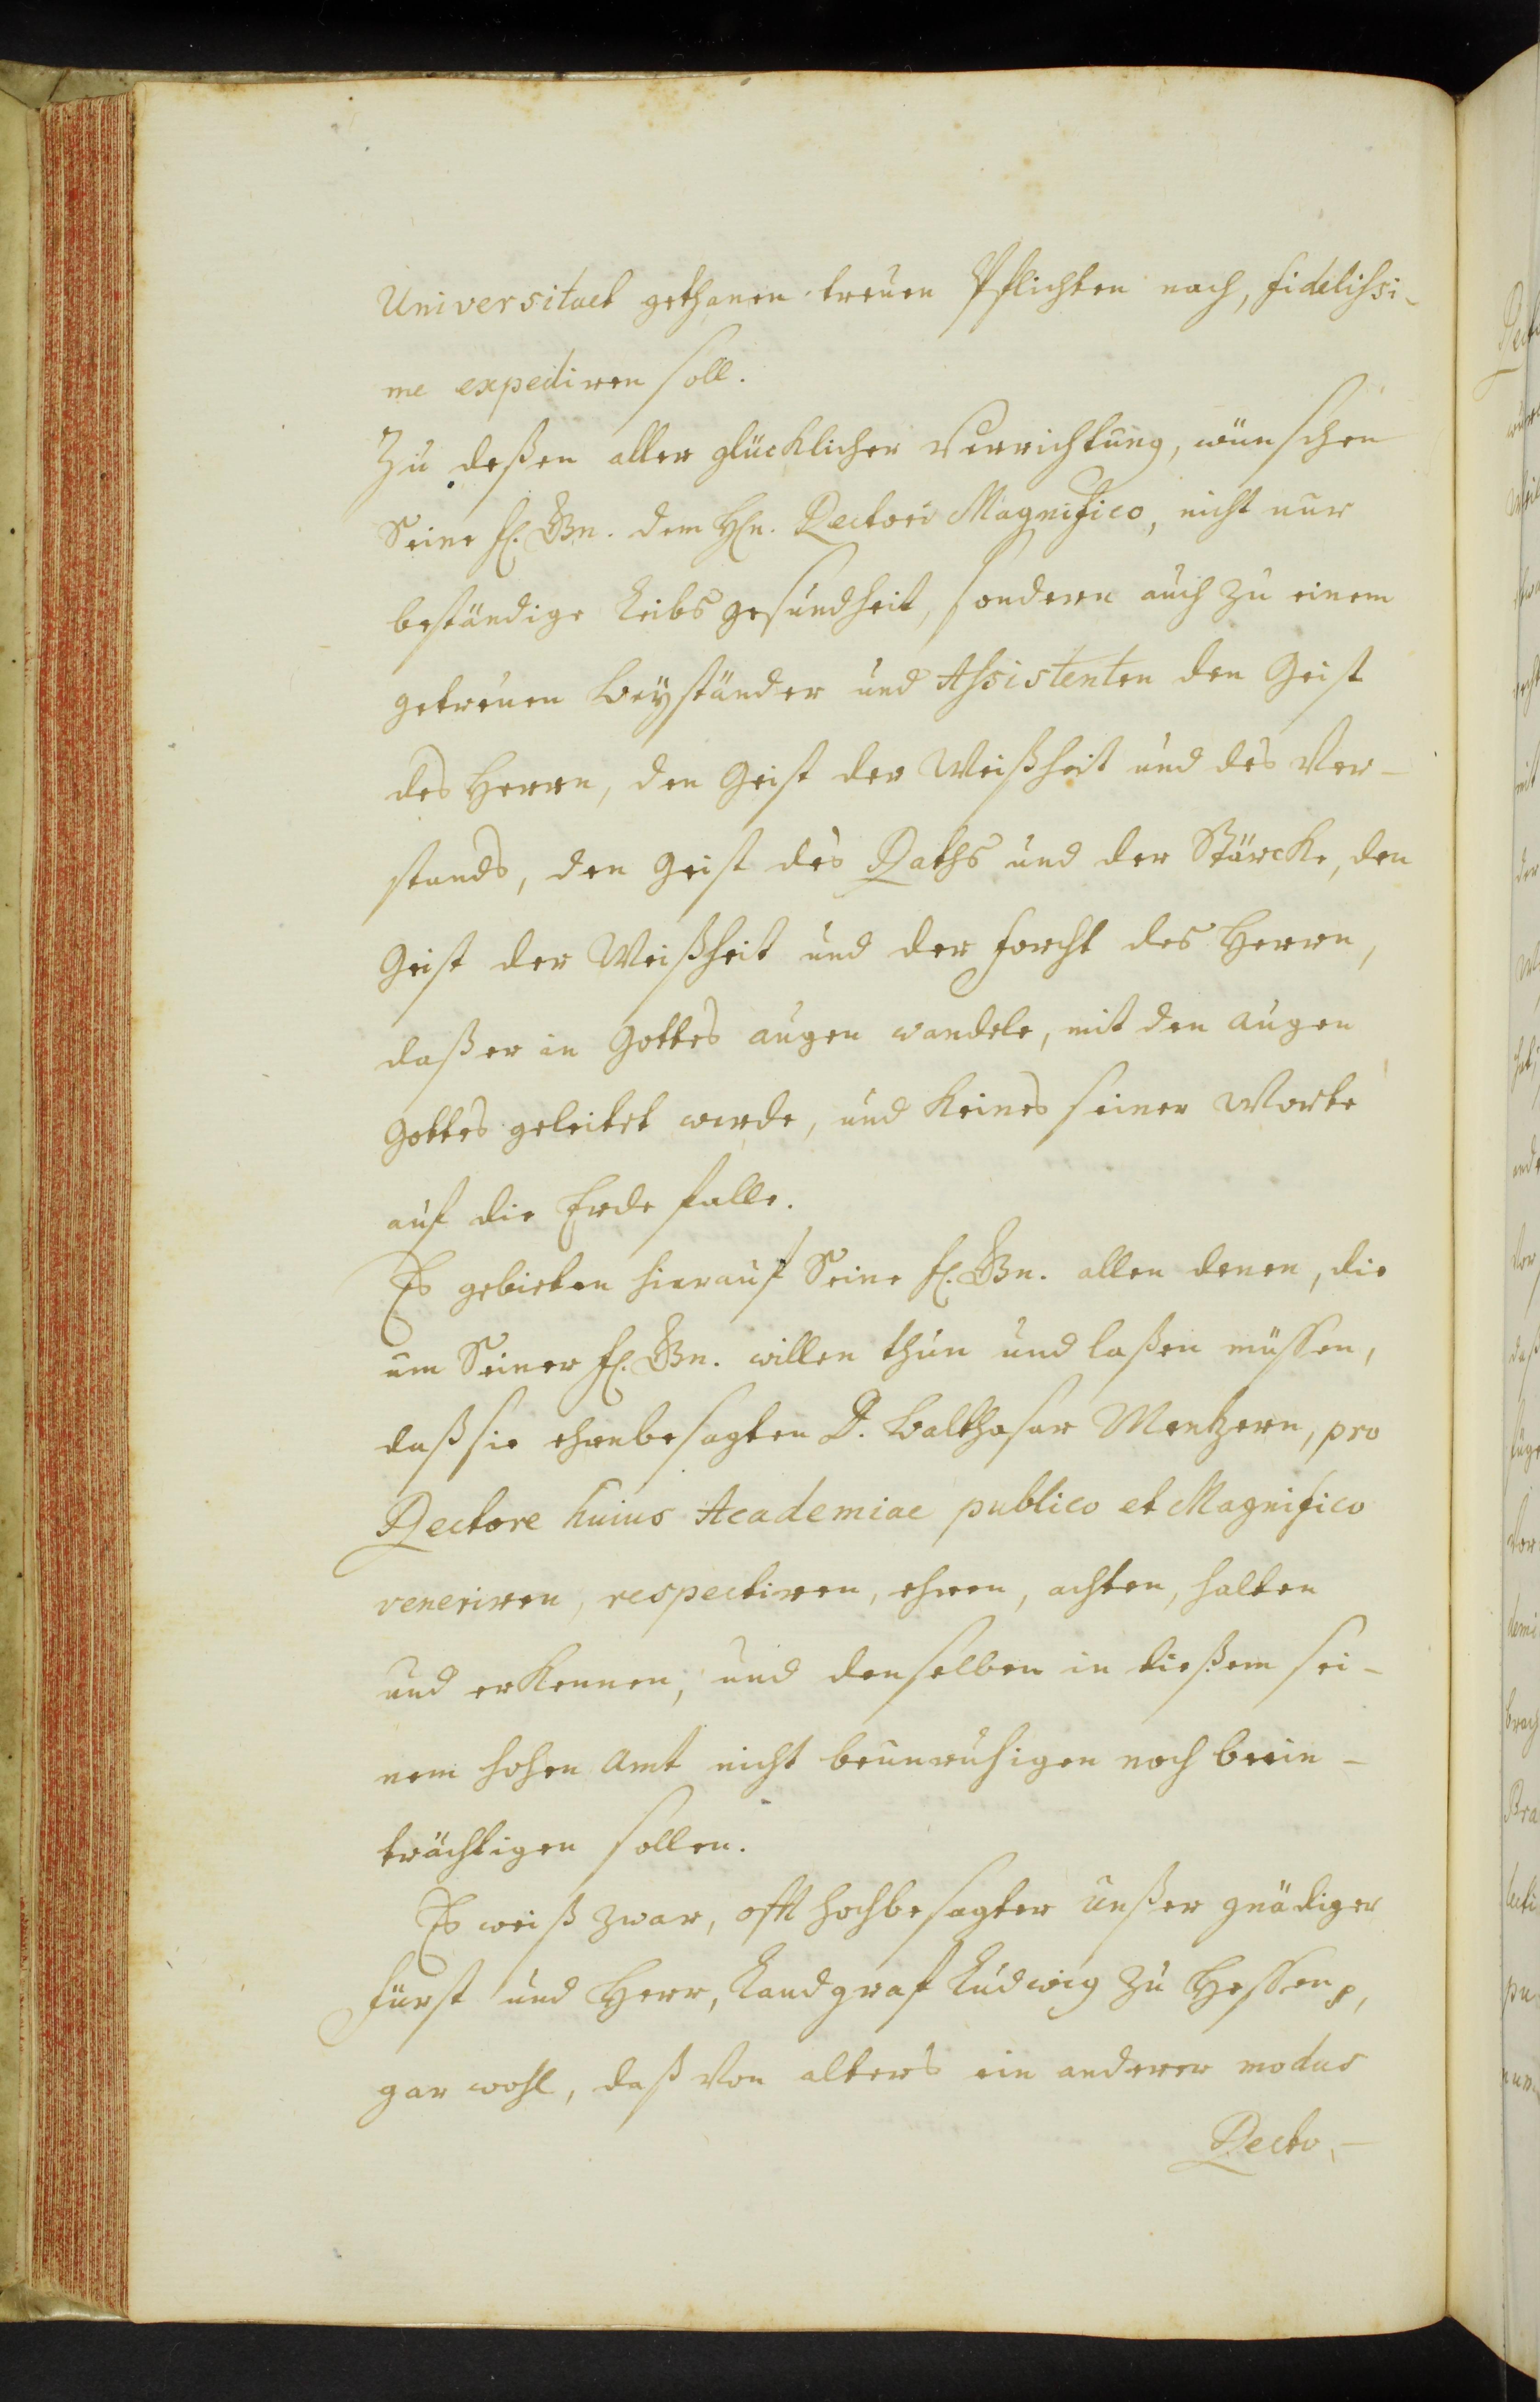 Universitaet gethanen treuen Pflichten nach, fidelissi-
me expediren soll.
Zu deßen aller glücklicher Verrichtung, wünschen
Seine f. Gn. dem Hn. Rectori Magnifico, nicht nur
beständige Leibs gesundheit, sondern auch zu einem
getreuen Beyständer und Assistenten den Geist
des Herrn, den Geist der Weißheit und des Ver-
stands, den Geist des Raths und der Stärcke, den
Geist der Weißheit und der forcht des Herrn,
daß er in Gottes augen wandele, mit den augen
Gottes geleitet werde, und keines seiner Worte
auf die Erde falle.
Es gebieten hierauf Seine f. Gn. allen denen, die
um Seiner f. Gn. willen thun und laßen müssen,
daß sie ehrenbesagten D. Balthasar Mentzern, pro
Rectore huius Academiae publico et Magnifico
veneriren, respectiren, ehren, achten, halten
und erkennen, und denselben in dießem sei-
nem hohen Amt nicht beunruhigen noch beein-
trächtigen sollen.
Es weiß zwar, offt hochbesagter unßer gnädiger
Fürst und Herr, Landgraf Ludwig zu Hessen p,
gar wohl, daß von alters ein anderer modus
Recto-